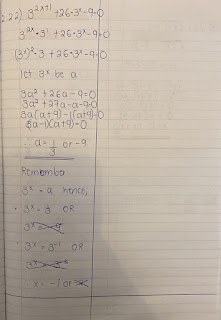 2.2.2) 3^(2x+1) + 26·3^x - 9 = 0
3^(2x)·3^1 + 26·3^x - 9 = 0
(3^x)^2·3 + 26·3^x - 9 = 0
let 3^x be a
3a^2 + 26a - 9 = 0
3a^2 + 27a - a - 9 = 0
3a(a+9) - 1(a+9) = 0
(3a-1)(a+9) = 0
∴ a = 1/3 or -9
Rememba
3^x = a hence,
3^x = 1/3 OR
3^x = -9
3^x = 3^-1 OR
x = -1 or